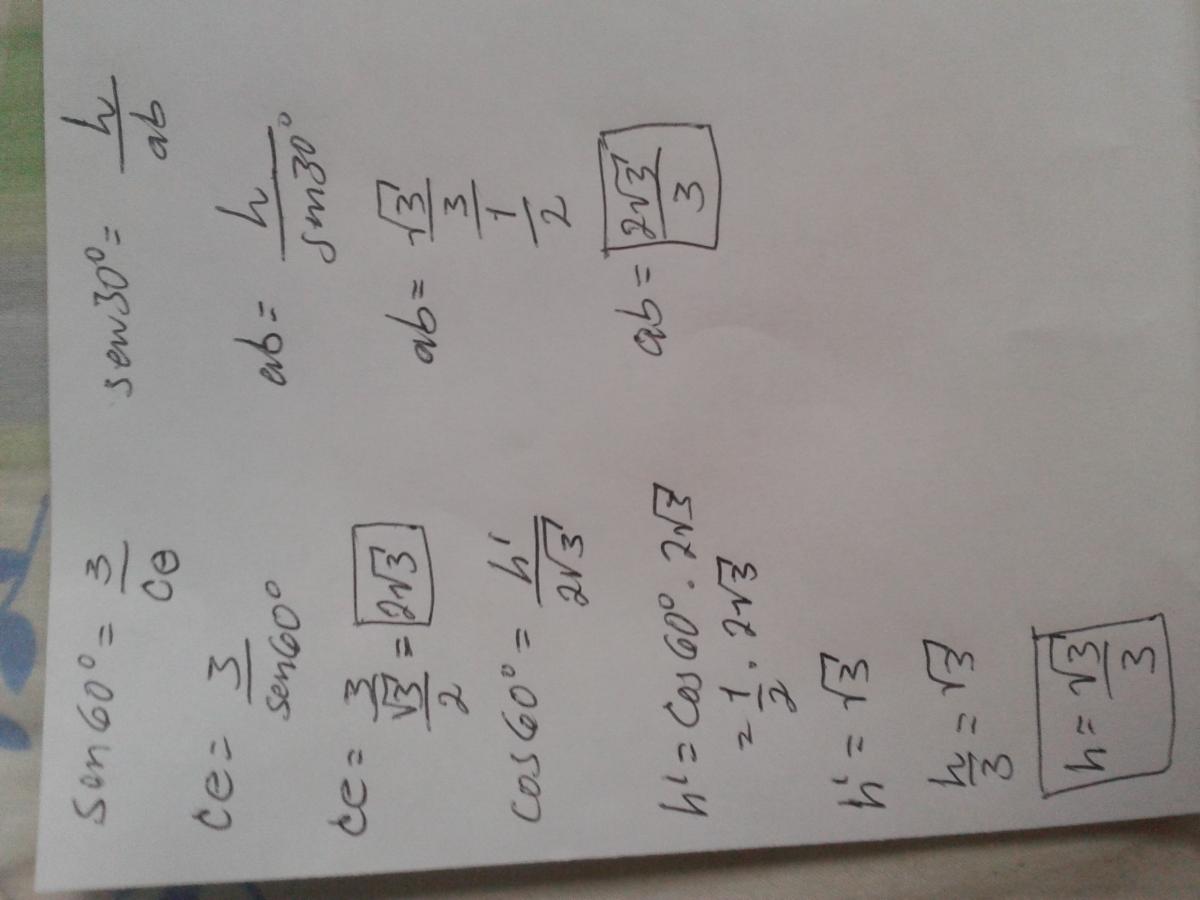 sen60° = 3/ce
ce = 3/sen60°
ce = 3/(√3/2) = 2√3
cos60° = h'/2√3
h' = cos60° . 2√3
= 1/2 . 2√3
h' = √3
h/3 = √3
h = √3/3
sen30° = h/ab
ab = h/sen30°
ab = (√3/3)/(1/2)
ab = 2√3/3